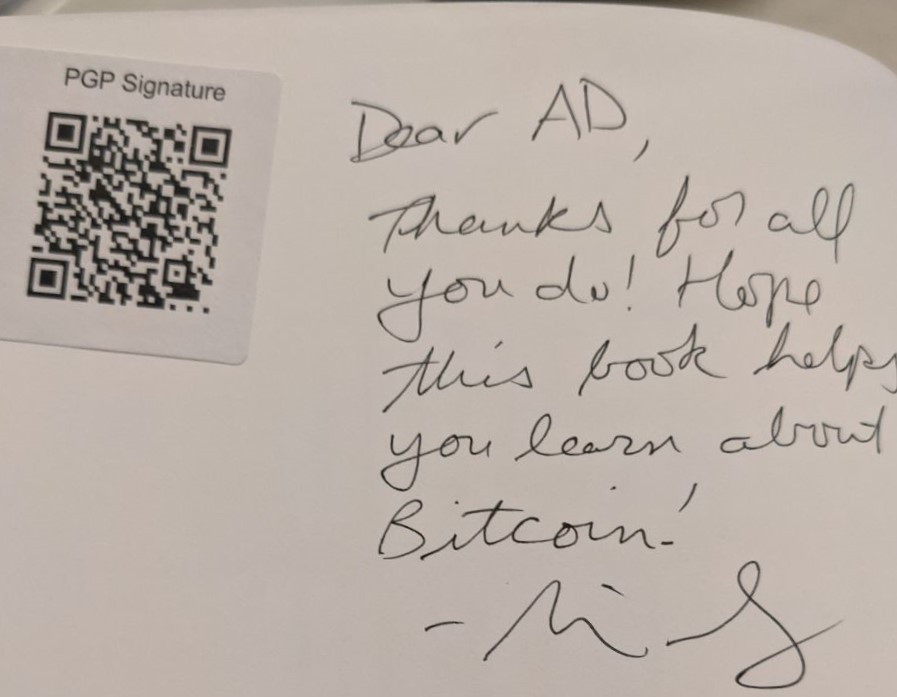 PGP Signature
Dear AD,
Thanks for all
you do! Hope
this book helps
you learn about
Bitcoin!